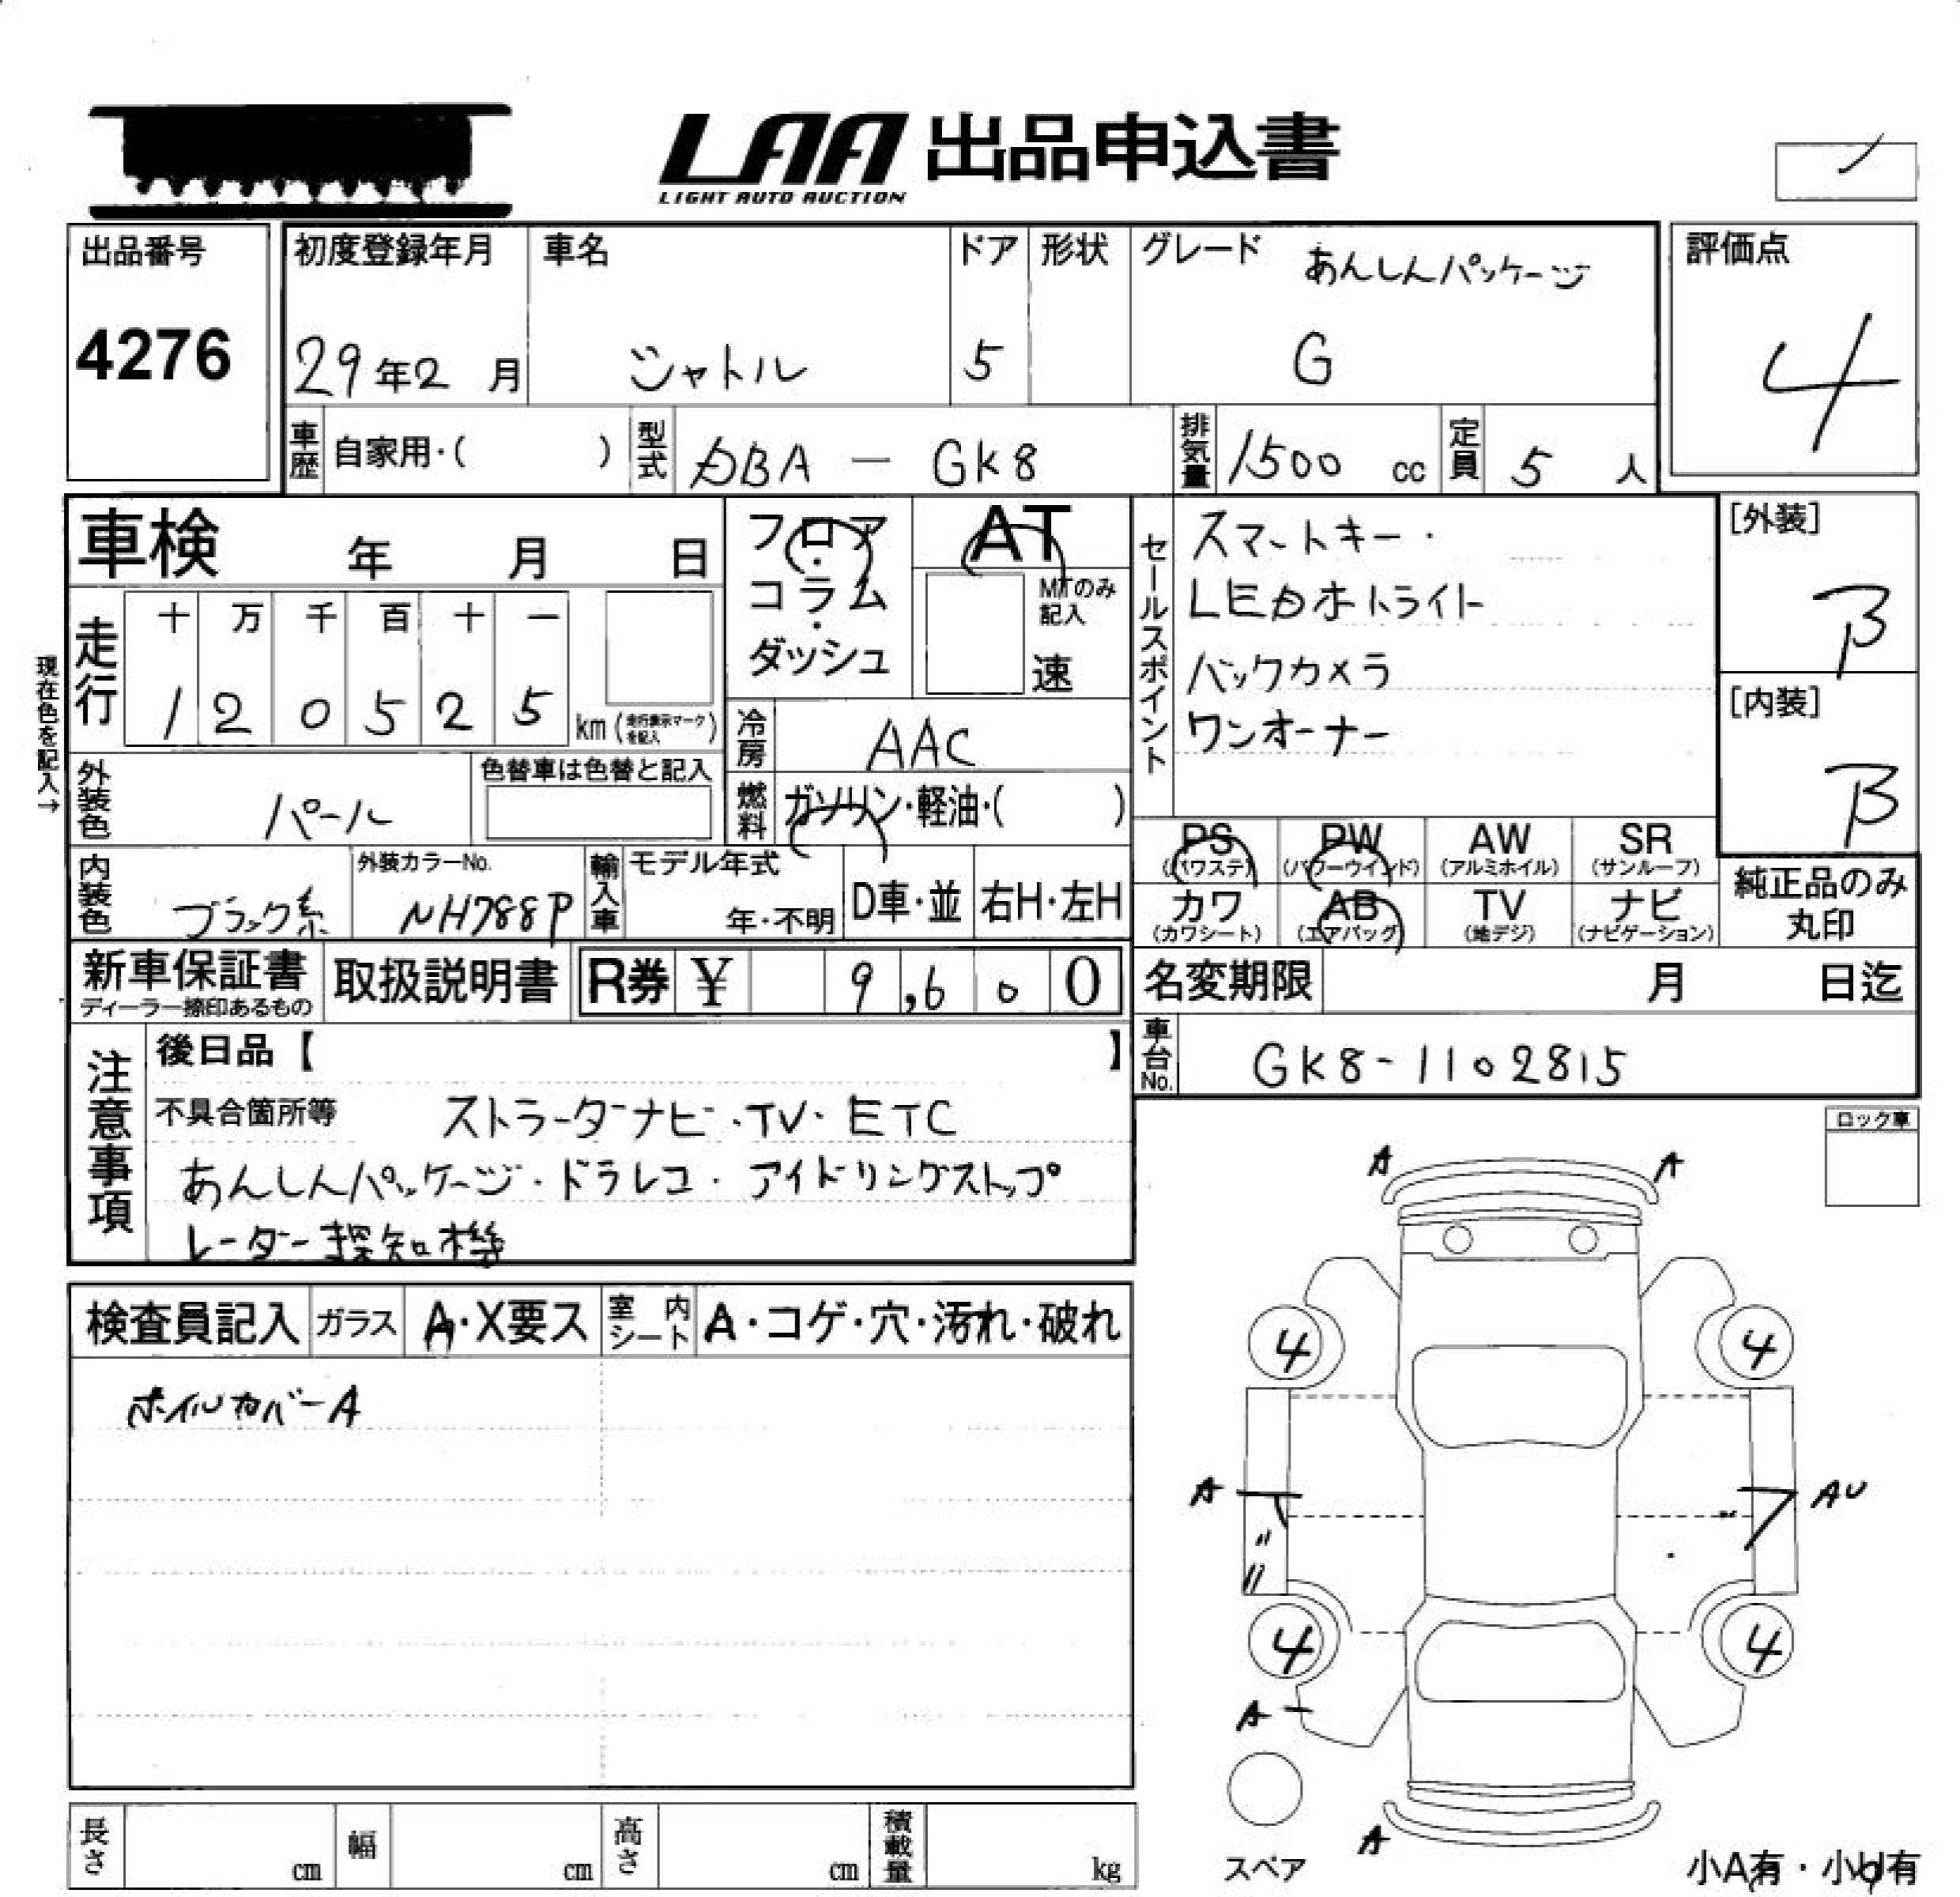 LAA 出品申込書
LIGHT AUTO AUCTION
出品番号
4276
初度登録年月
29年2月
車名
シャトル
ドア
5
形状
グレード
あんしんパッケージ
G
評価点
4
車歴
自家用・( )
型式
DBA - GK8
排気量
1500 cc
定員
5 人
車検 年 月 日
走行
十 万 千 百 十 一
1 2 0 5 2 5
km (走行表示マークを記入)
現在色を記入→
フロア・コラム・ダッシュ
AT
MTのみ記入
速
冷房
AAC
燃料
ガソリン・軽油・( )
セールスポイント
スマートキー・
LEDホトライト
バックカメラ
ワンオーナー
[外装]
B
[内装]
B
外装色
パール
色替車は色替と記入
内装色
ブラック系
外装カラーNo.
NH788P
輸入車
モデル年式
年・不明
D車・並
右H・左H
PS (パワステ)
PW (パワーウインド)
AW (アルミホイル)
SR (サンルーフ)
カワ (カワシート)
AB (エアバッグ)
TV (地デジ)
ナビ (ナビゲーション)
純正品のみ
丸印
新車保証書
ディーラー捺印あるもの
取扱説明書
R券 ¥ 9,600
名変期限 月 日迄
車台No.
GK8-1102815
注意事項
後日品【 】
不具合箇所等 ストラーダナビ・TV・ETC
あんしんパッケージ・ドラレコ・アイドリングストップ
レーダー探知機
ロック車
検査員記入
ガラス
A・X要ス
室内シート
A・コゲ・穴・汚れ・破れ
ホイルカバーA
A A
4 4
A AU
4 4
A
A
スペア
小A有・小U有
長さ cm
幅 cm
高さ cm
積載量 kg